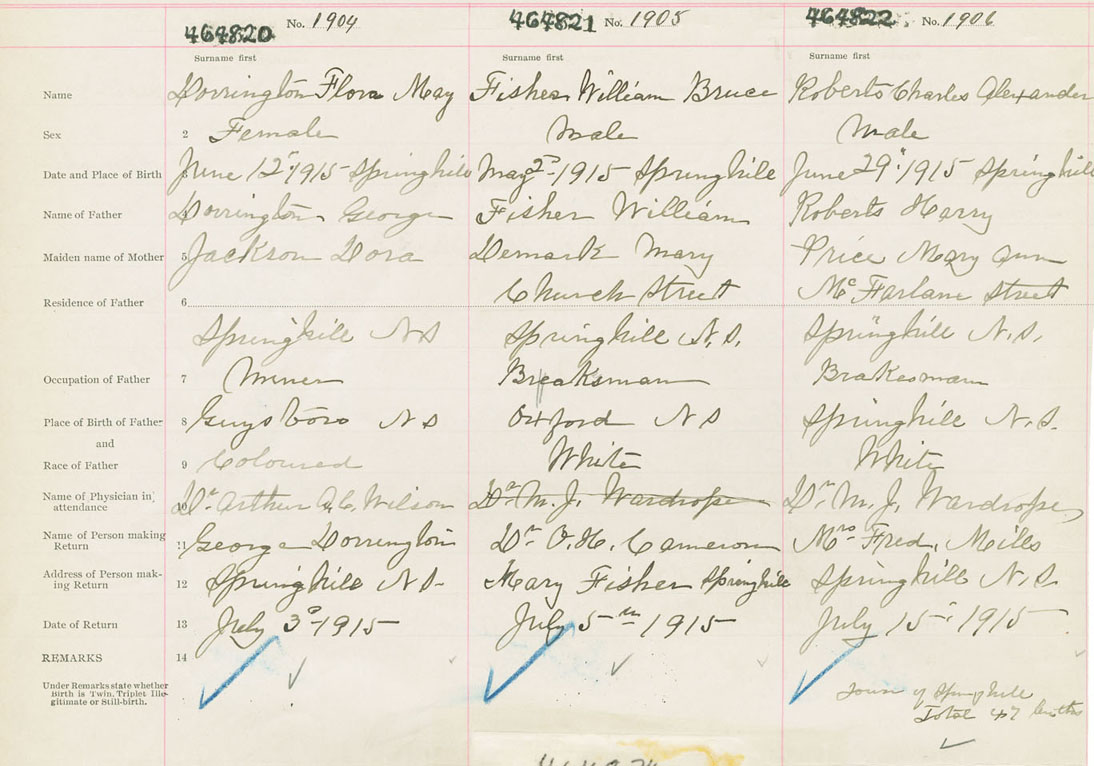 464820 No. 1904 464821 No. 1905 464822 No. 1906
Surname first Surname first Surname first
Name Dorrington Flora May Fisher William Bruce Roberts Charles Alexander
Sex 2 Female male male
Date and Place of Birth June 12" 1915 Springhill May 2nd 1915 Springhill June 29" 1915 Springhill
Name of Father Dorrington George Fisher William Roberts Harry
Maiden name of Mother 5 Jackson Dora Demark Mary Price Mary Ann
Residence of Father 6 Church Street McFarlane Street
Springhill N S Springhill N. S. Springhill N. S.
Occupation of Father 7 Miner Breaksman Brakesman
Place of Birth of Father 8 Guysboro N S Oxford N S Springhill N. S.
and
Race of Father 9 Coloured White White
Name of Physician in Dr Arthur Wilson Dr M. J. Wardrope Dr M. J. Wardrope
attendance 10
Name of Person making 11 George Dorrington Dr O. H. Cameron Mrs Fred. Mills
Return
Address of Person mak- 12 Springhill N S. Mary Fisher Springhill Springhill N. S.
ing Return
Date of Return 13 July 3d 1915 July 5th 1915 July 15" 1915
REMARKS 14
Under Remarks state whether
Birth is Twin, Triplet Ille-
gitimate or Still-birth.
Town of Springhill
Total 47 births